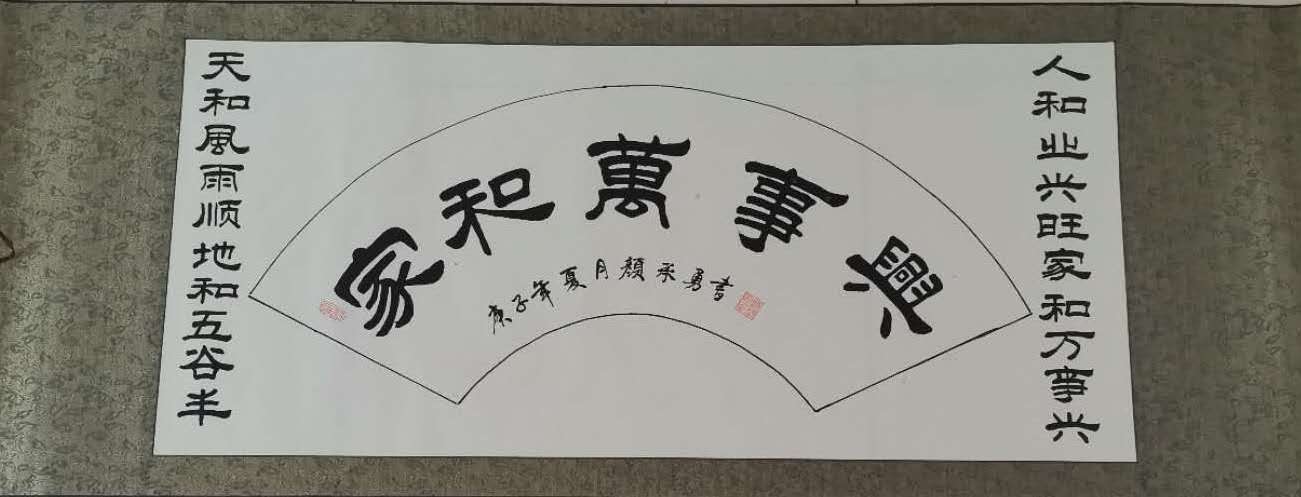 人和业兴旺家和万事兴
家和萬事興
庚子年夏月顏承勇書
天和風雨顺地和五谷丰